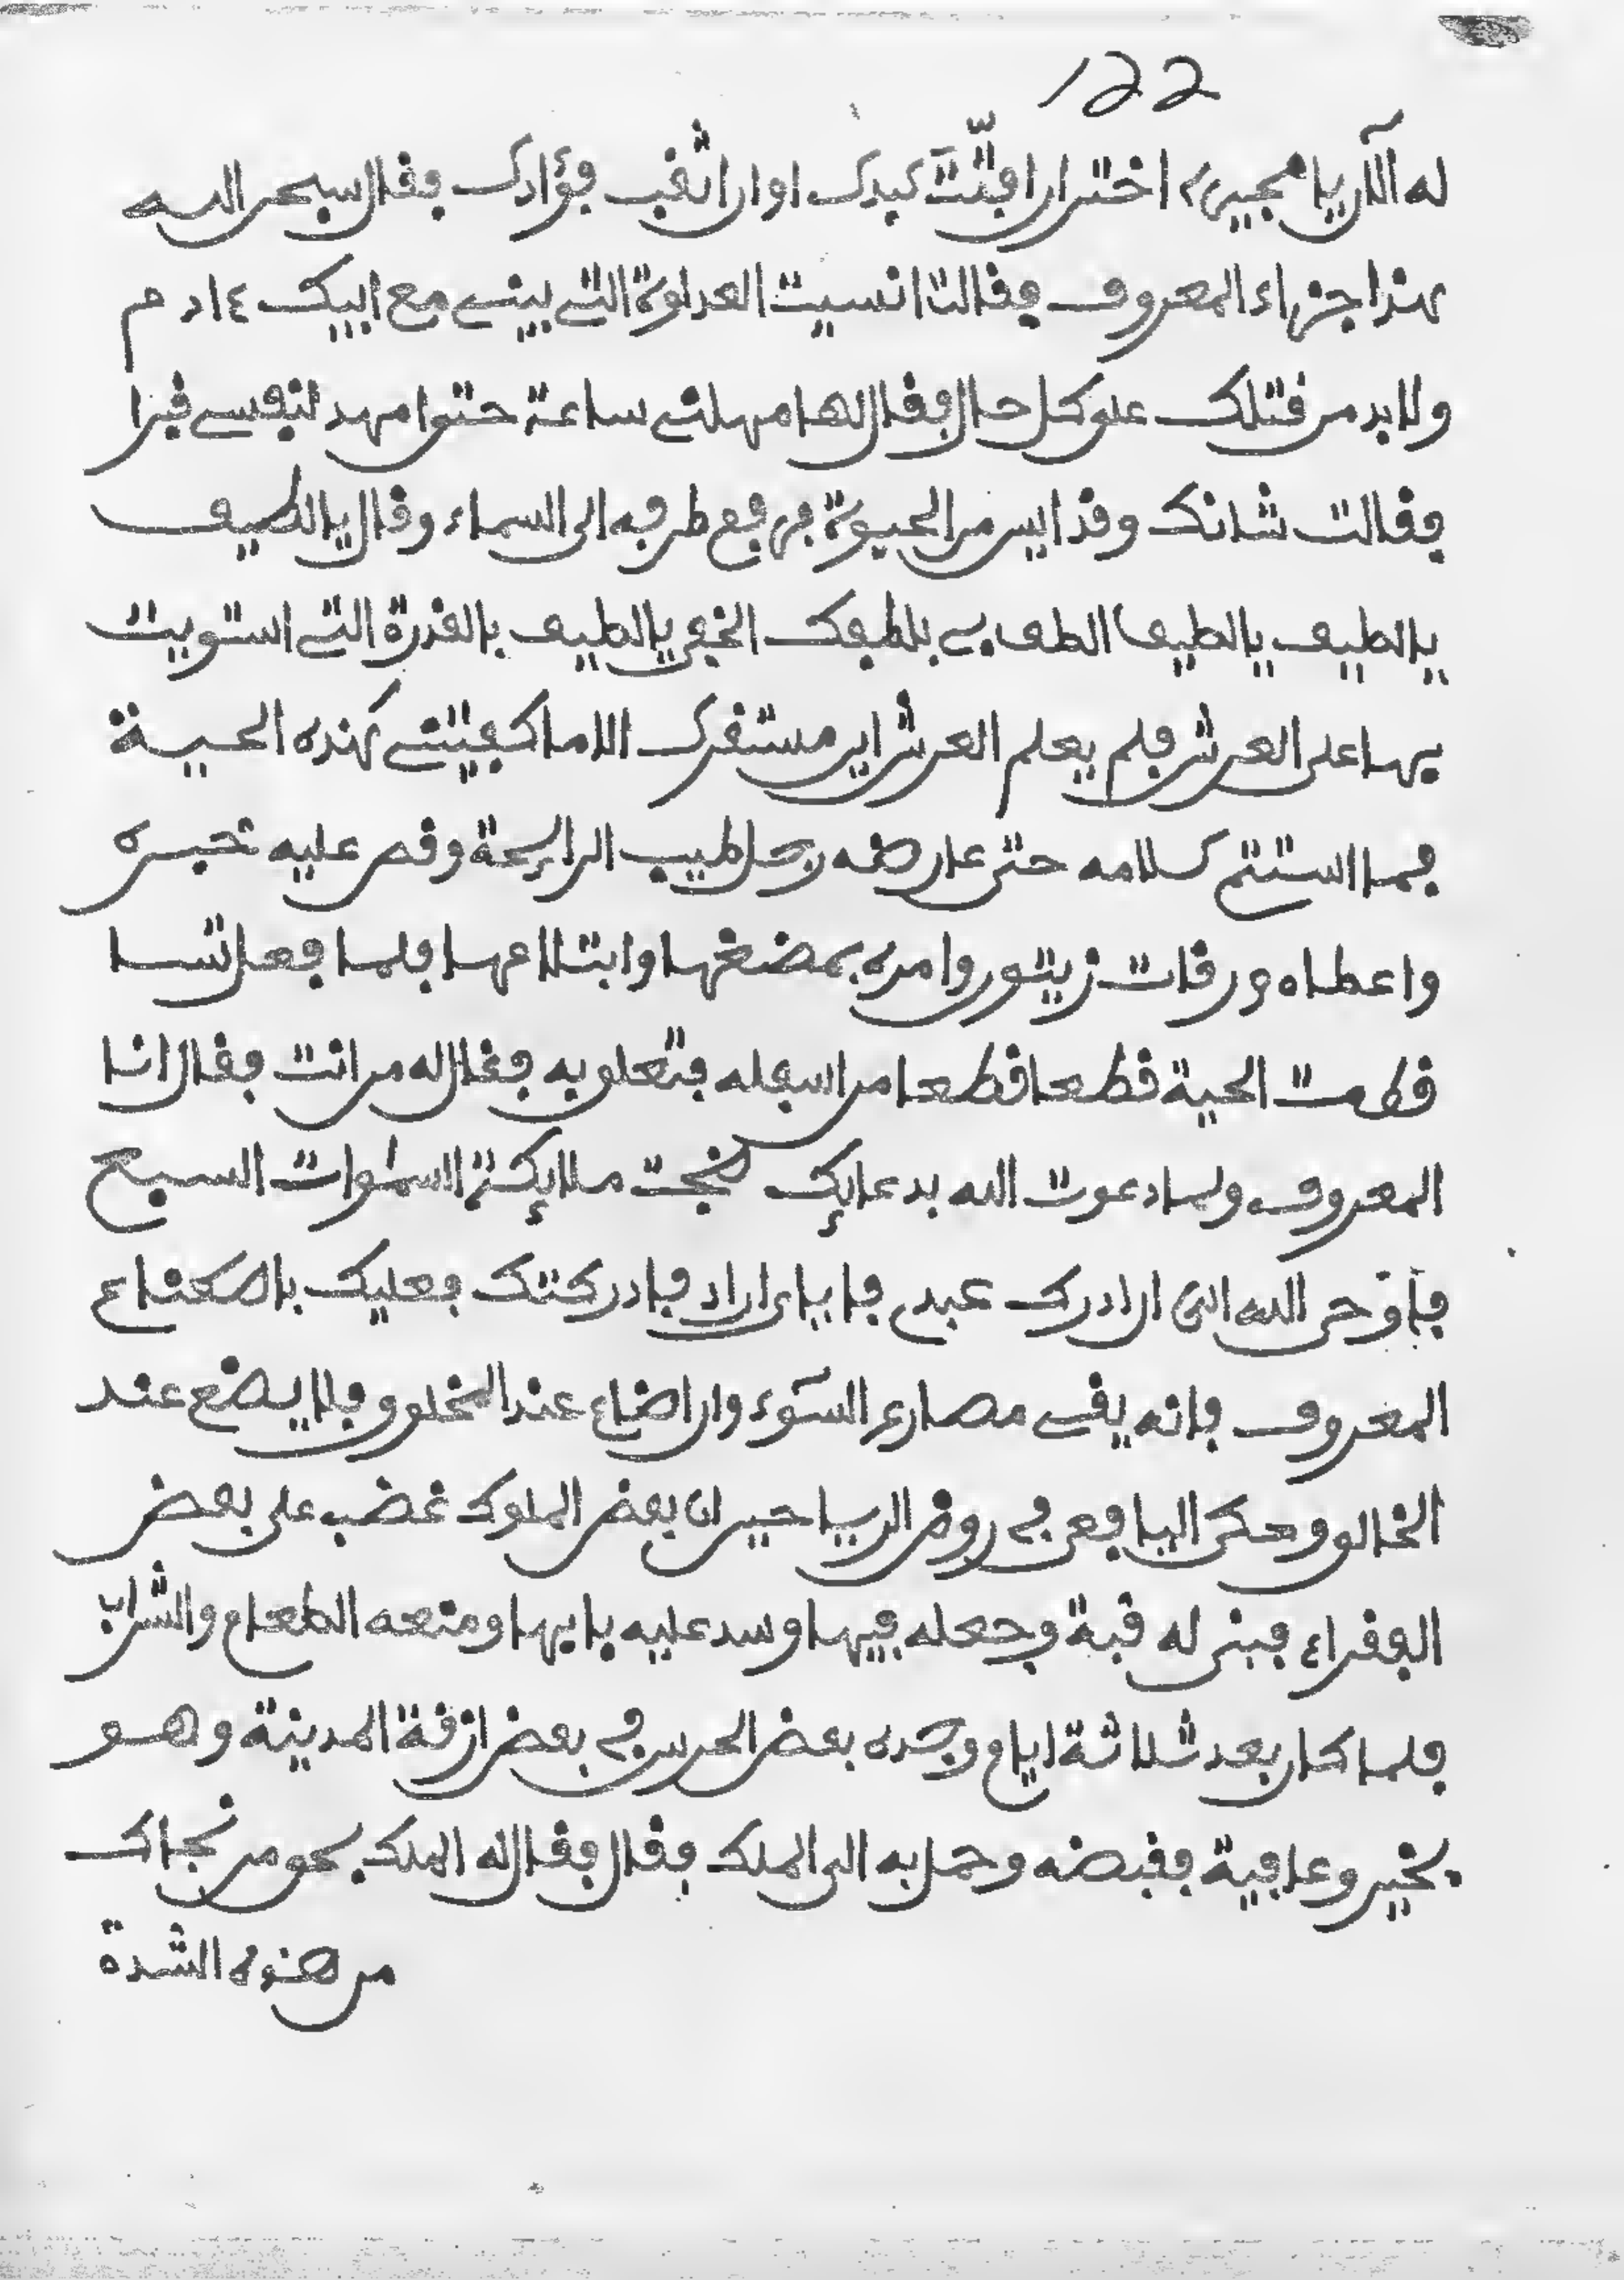 122
له الآن يا مجيري اختر ان افتّت كبدك او ان اثقب فؤادك فقال سبحن الله
هذا جزاء المعروف فقالت انسيت العداوة التي بيني مع ابيك ءادم
ولا بد من قتلك على كل حال فقال لها امهلني ساعة حتى امهد لنفسي قبرا
فقالت شانك وقد ايس من الحيوة فرفع طرفه الى السماء وقال يا لطيف
يا لطيف يا لطيف الطف بي بلطفك الخفي يا لطيف بالقدرة التي استويت
بها على العرش فلم يعلم العرش اين مستقرك الا ما كفيتني هذه الحية
فما استتم كلامه حتى عارضه رجل طيب الرايحة وقص عليه خبره
واعطاه ورقات زيتون وامره بمضغها وابتلاعها فلما فعل تسا
قطت الحية قطعا قطعا من اسفله فتعلق به فقال له من انت فقال انا
المعروف ولما دعوت الله بدعايك ضجت ملايكة السموات السبع
فأوحى الله الى ان ادرك عبدي فلان فادركتك فعليك باصطناع
المعروف فانه يقي مصارع السوء وان ضاع عند المخلوق فلا يضع عند
الخالق وحكى اليافعي في روض الرياحين ان بعض الملوك غضب على بعض
الفقراء فبنى له قبة وجعله فيها وسد عليه بابها ومنعه الطعام والشراب
فلما كان بعد ثلاثة ايام وجده بعض الحرس في بعض ازقة المدينة وهو
بخير وعافية فقبضه وحمل به الى الملك فقال فقال له الملك بحق من نجاك
من هذه الشدة